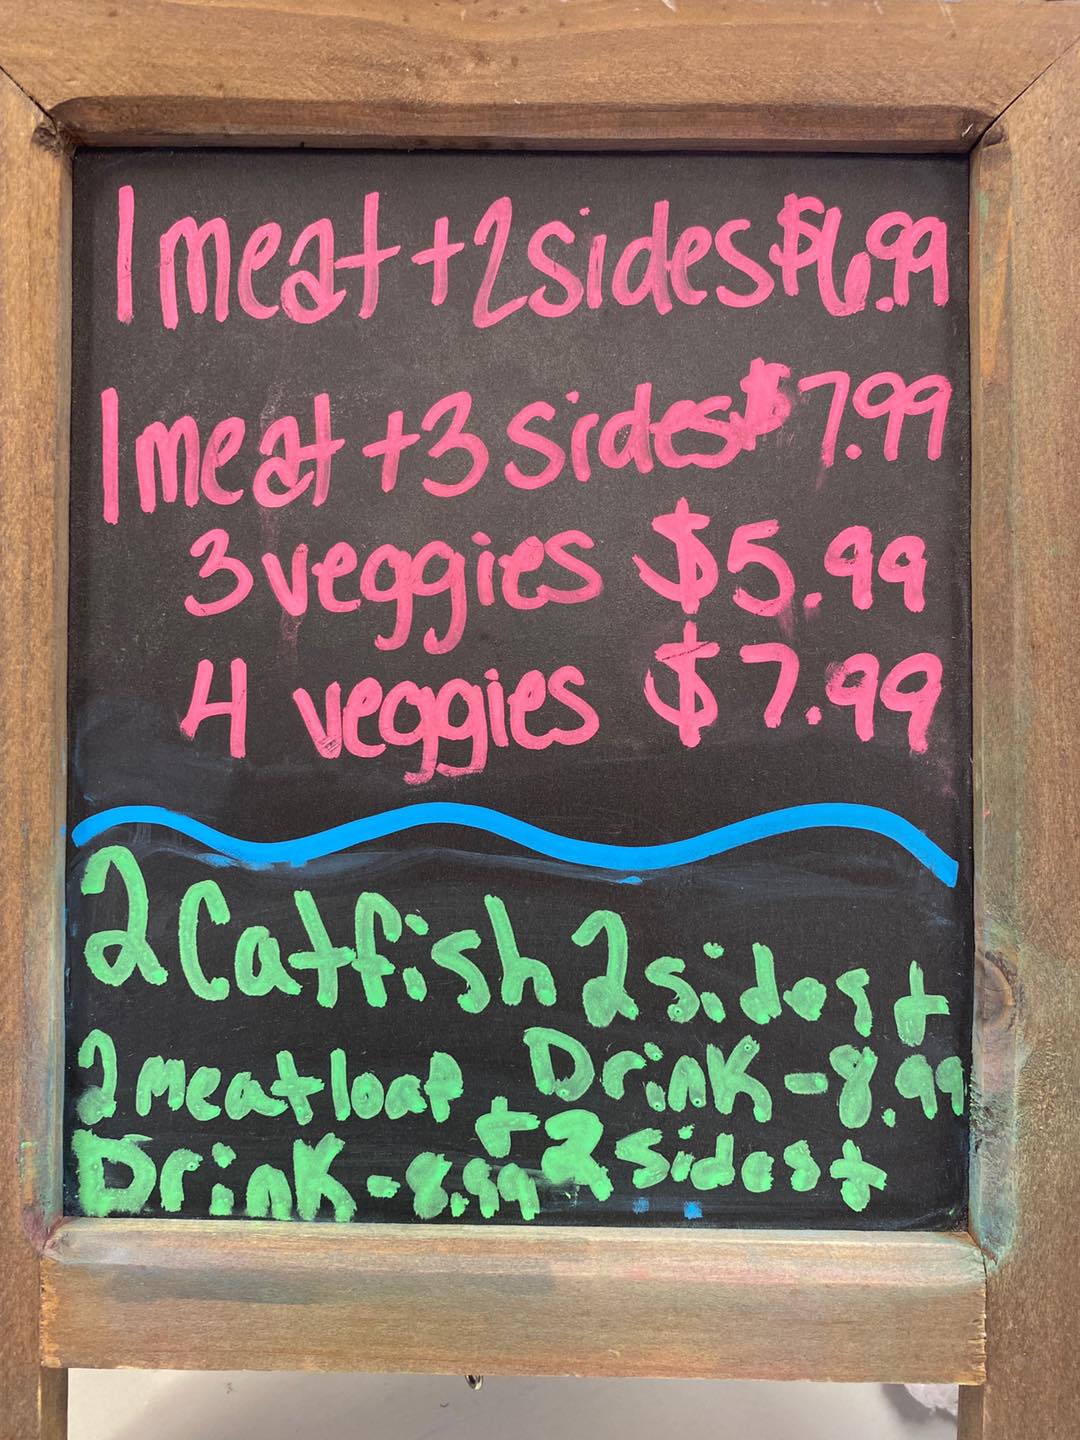 1 meat + 2 sides $6.99
1 meat + 3 sides $7.99
3 veggies $5.99
4 veggies $7.99
2 Catfish 2 sides +
Drink - 8.99
2 meatloaf + 2 sides +
Drink - 8.99